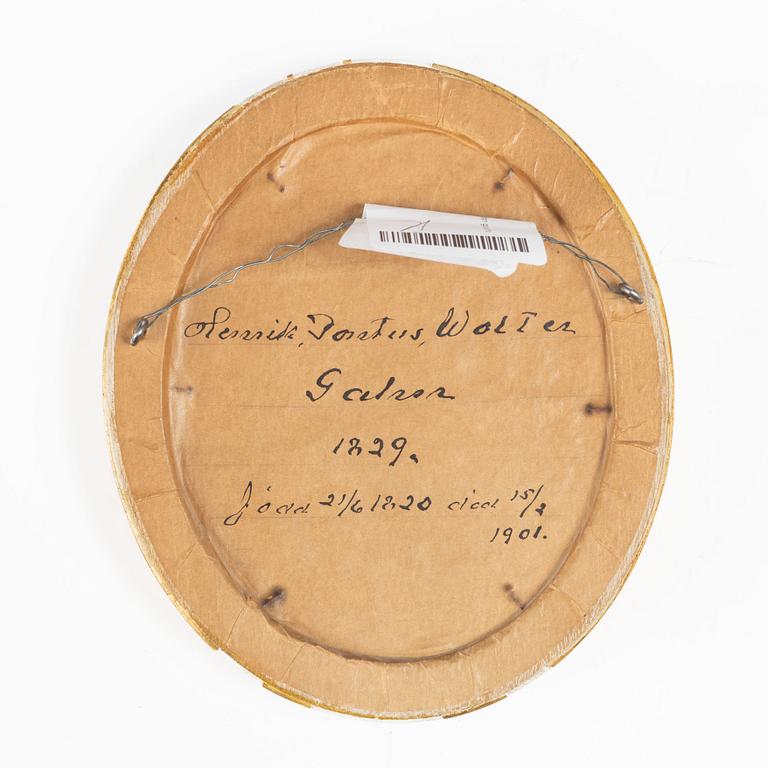 Henrik, Pontus, Wolter
Gahrn
1829.
född 21/6 1820 död 15/2
1901.